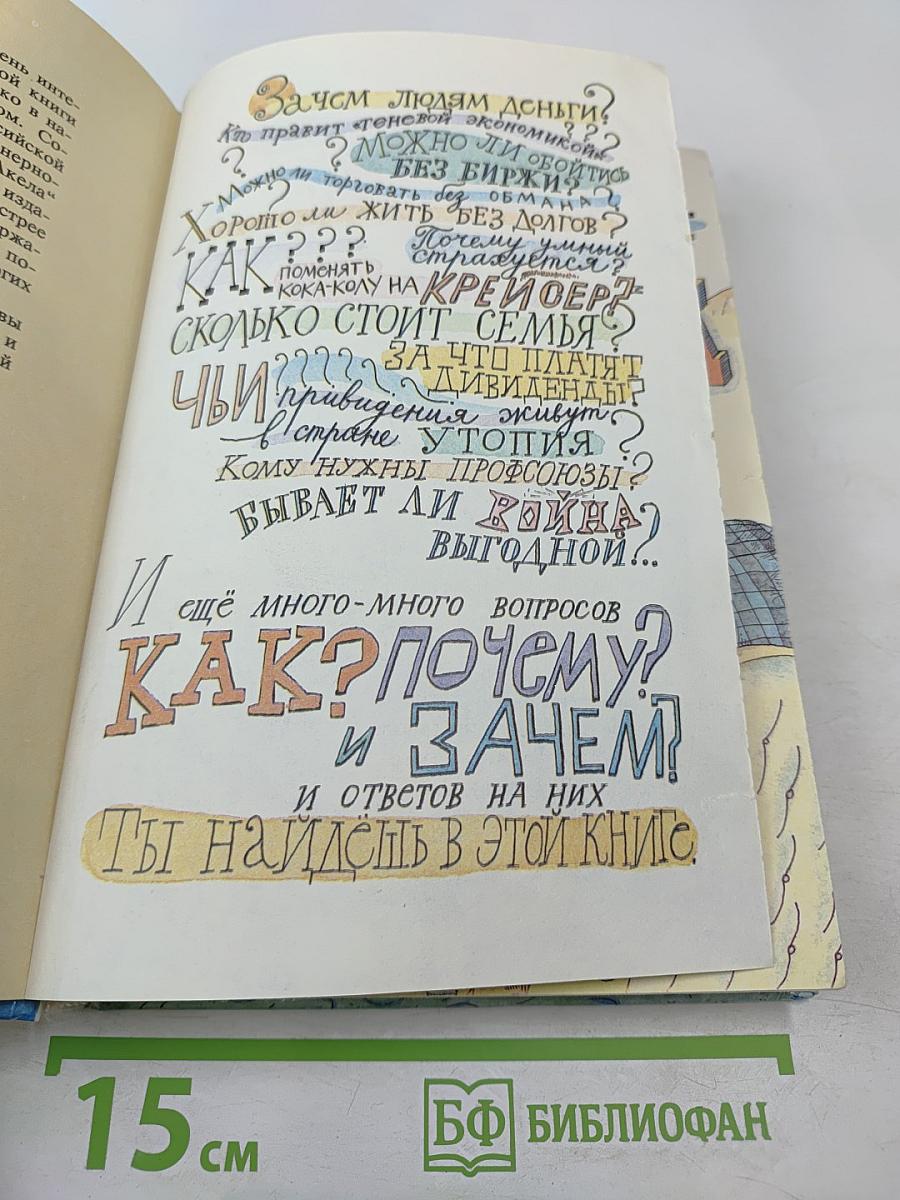 ень инте-
ой книги
ко в на-
ом. Со-
сийской
нерно-
Акела“
изда-
стрее
ржа-
по-
гих
вы
и
й
Зачем людям деньги?
Кто правит «теневой экономикой»???
? ? Можно ли обойтись
без биржи?
Можно ли торговать без обмана?
Хорошо ли жить без долгов?
Почему умный
страхуется?
КАК???
поменять
кока-колу на КРЕЙСЕР?
Сколько стоит семья?
За что платят
дивиденды?
ЧЬИ?????
привидения живут
в стране Утопия?
Кому нужны профсоюзы?
Бывает ли ВОЙНА
выгодной?..
И ещё много-много вопросов
КАК? ПОЧЕМУ?
и ЗАЧЕМ?
и ответов на них
ТЫ НАЙДЁШЬ В ЭТОЙ КНИГЕ.
15 см
БФ БИБЛИОФАН